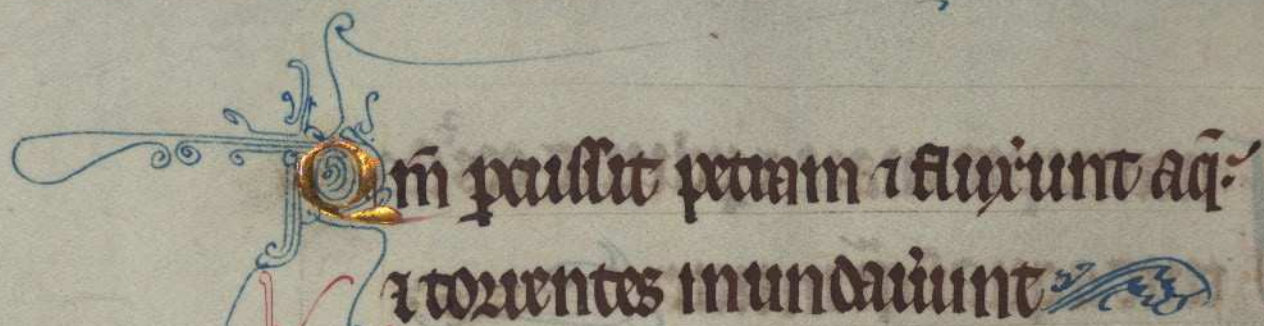 Qm̄ ꝑcussit petram ⁊ flux͛unt aq̄
⁊ torrentes inundau͛unt